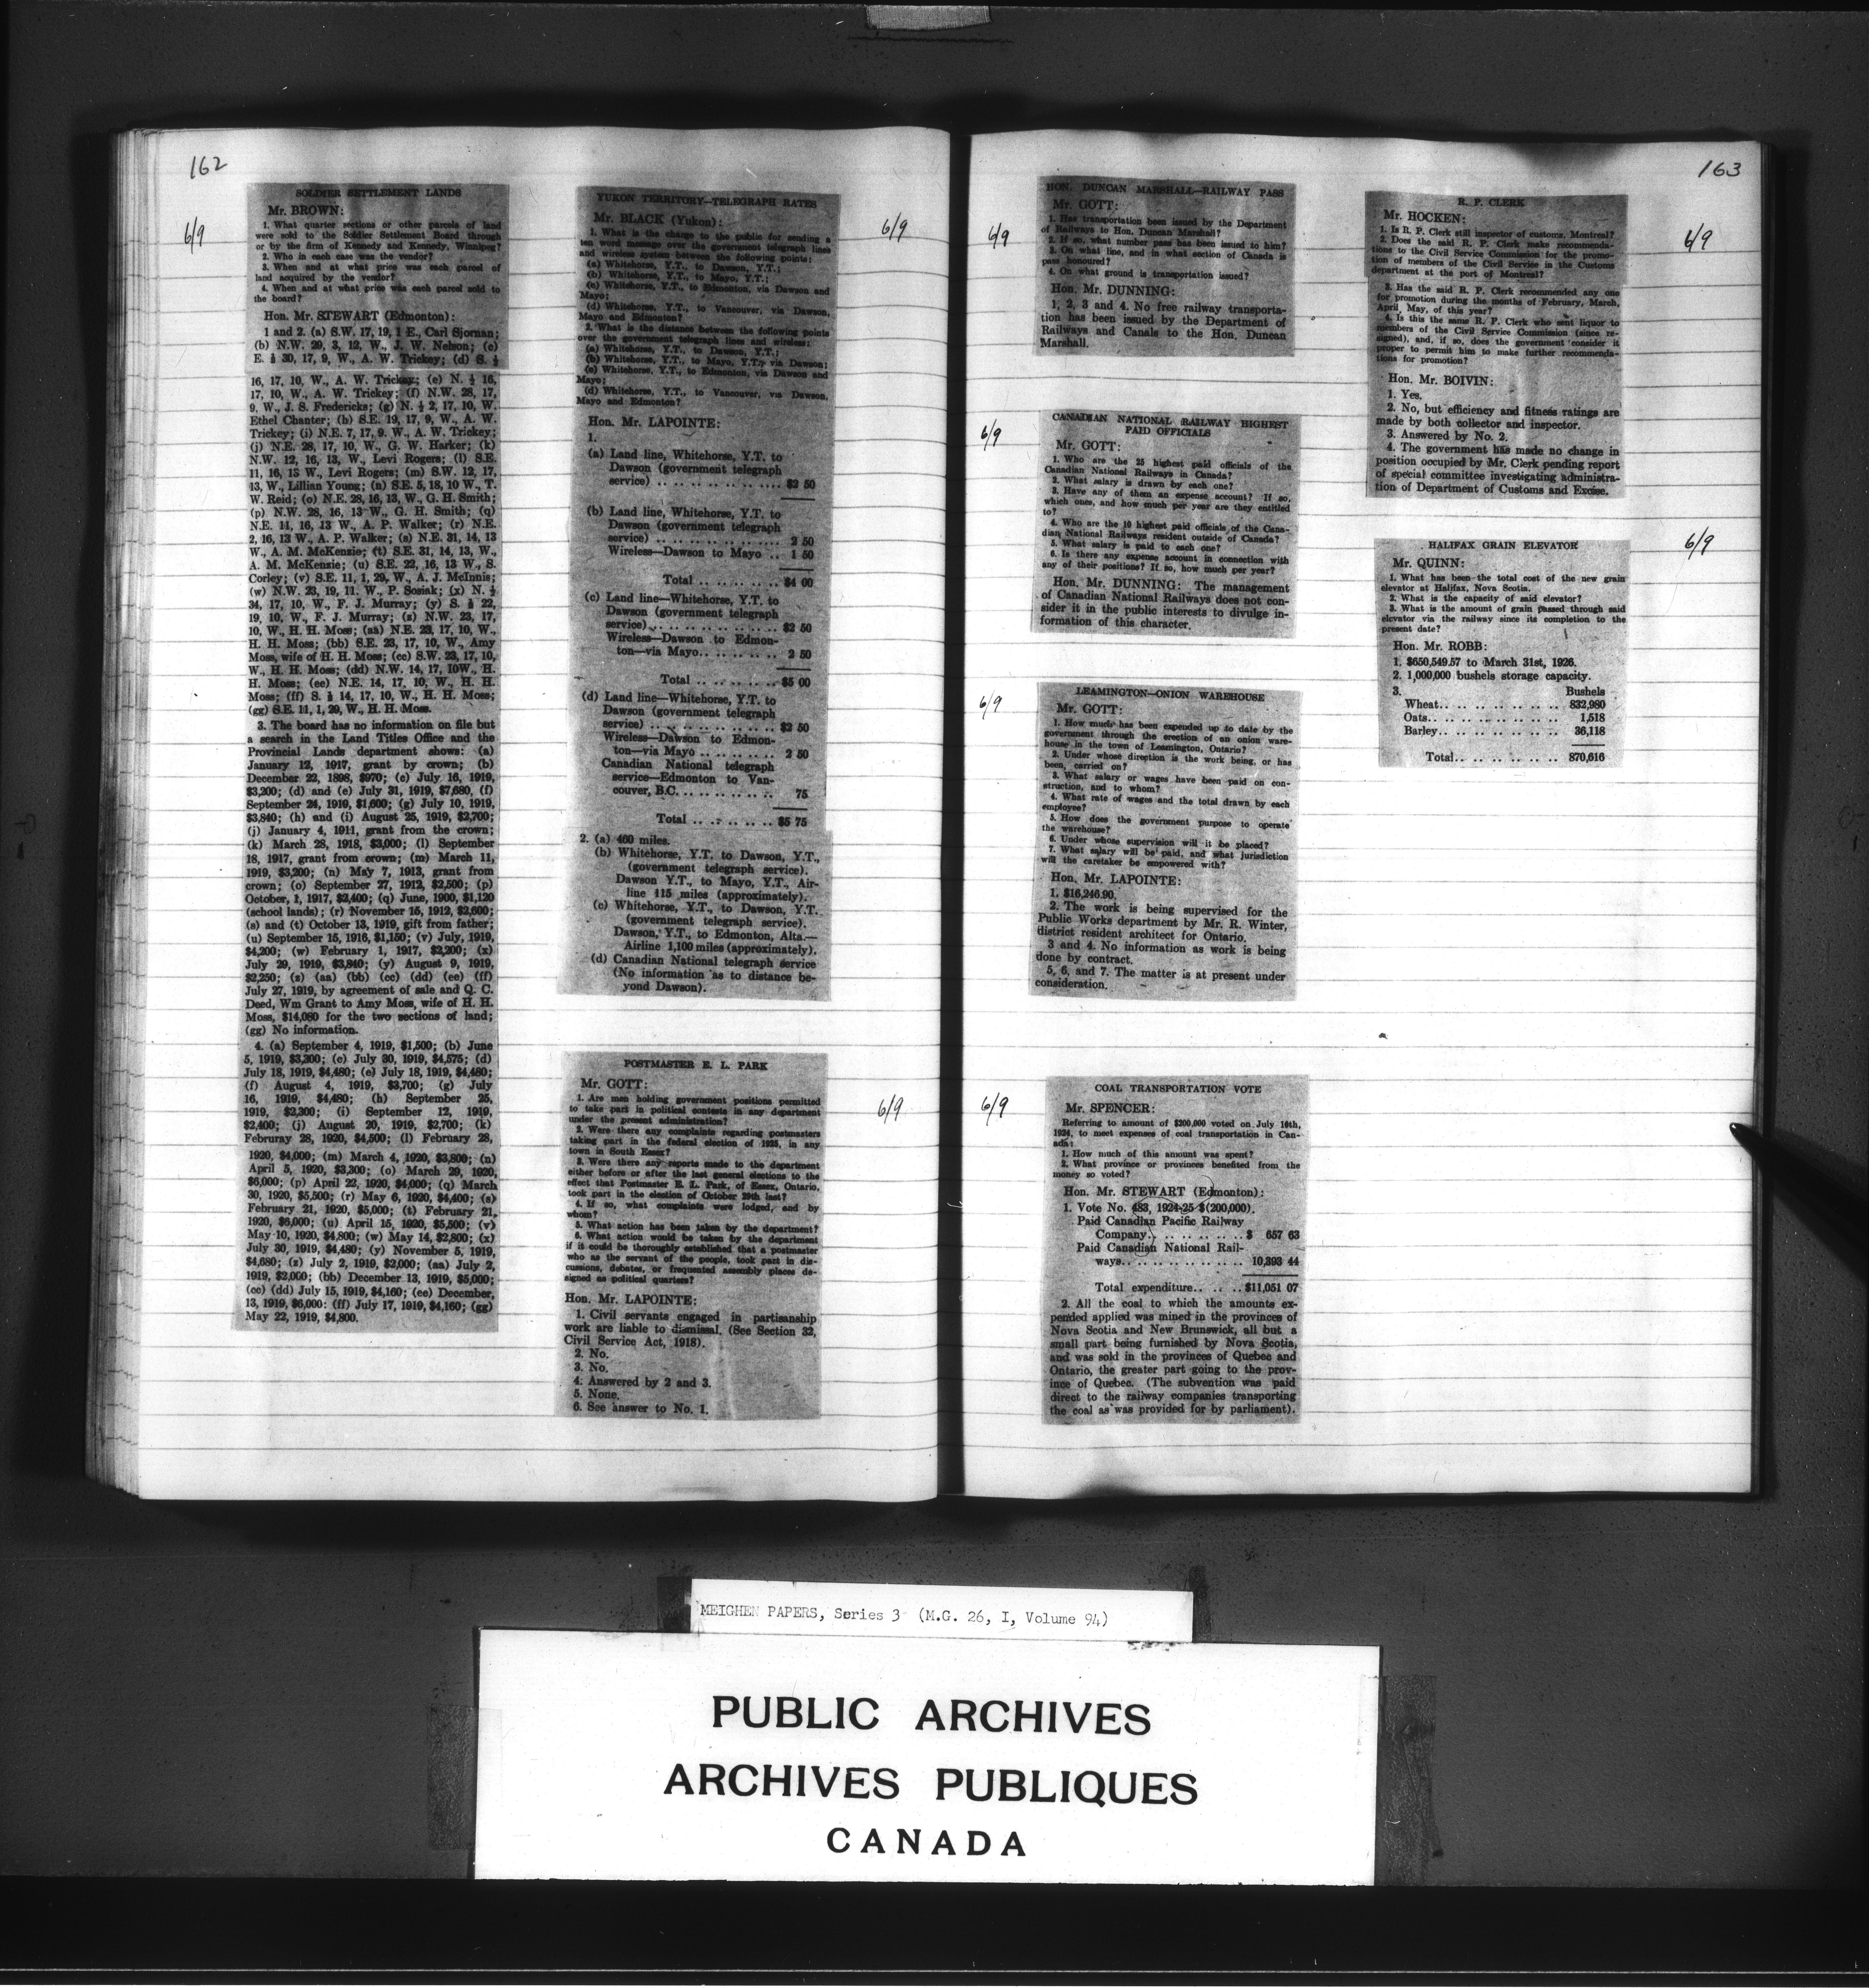 162
6/9
SOLDIER SETTLEMENT LANDS
Mr. BROWN:
1. What quarter sections or other parcels of land
were sold to the Soldier Settlement Board through
or by the firm of Kennedy and Kennedy, Winnipeg?
2. Who in each case was the vendor?
3. When and at what price was each parcel of
land acquired by the vendor?
4. When and at what price was each parcel sold to
the board?
Hon. Mr. STEWART (Edmonton):
1 and 2. (a) S.W. 17, 19, 1 E., Carl Sjornan;
(b) N.W. 29, 3, 12, W., J. W. Nelson; (c)
E. ½ 30, 17, 9, W., A. W. Trickey; (d) S. ½
16, 17, 10, W., A. W. Trickey; (e) N. ½ 16,
17, 10, W., A. W. Trickey; (f) N.W. 28, 17,
9, W., J. S. Fredericks; (g) N. ½ 2, 17, 10, W.
Ethel Chanter; (h) S.E. 19, 17, 9, W., A. W.
Trickey; (i) N.E. 7, 17, 9. W., A. W. Trickey;
(j) N.E. 28, 17, 10, W., G. W. Harker; (k)
N.W. 12, 16, 13, W., Levi Rogers; (l) S.E.
11, 16, 13 W., Levi Rogers; (m) S.W. 12, 17,
13, W., Lillian Young; (n) S.E. 5, 18, 10 W., T.
W. Reid; (o) N.E. 28, 16, 13, W., G. H. Smith;
(p) N.W. 28, 16, 13 W., G. H. Smith; (q)
N.E. 11, 16, 13 W., A. P. Walker; (r) N.E.
2, 16, 13 W., A. P. Walker; (s) N.E. 31, 14, 13
W., A. M. McKenzie; (t) S.E. 31, 14, 13, W.,
A. M. McKenzie; (u) S.E. 22, 16, 13 W., S.
Corley; (v) S.E. 11, 1, 29, W., A. J. McInnis;
(w) N.W. 23, 19, 11. W., P. Sosiak; (x) N. ½
34, 17, 10, W., F. J. Murray; (y) S. ½ 22,
19, 10, W., F. J. Murray; (z) N.W. 23, 17,
10, W., H. H. Moss; (aa) N.E. 23, 17, 10, W.,
H. H. Moss; (bb) S.E. 23, 17, 10, W., Amy
Moss, wife of H. H. Moss; (cc) S.W. 23, 17, 10,
W., H. H. Moss; (dd) N.W. 14, 17, 10W., H.
H. Moss; (ee) N.E. 14, 17, 10, W., H. H.
Moss; (ff) S. ½ 14, 17, 10, W., H. H. Moss;
(gg) S.E. 11, 1, 29, W., H. H. Moss.
3. The board has no information on file but
a search in the Land Titles Office and the
Provincial Lands department shows: (a)
January 12, 1917, grant by crown; (b)
December 22, 1898, $970; (c) July 16, 1919,
$3,200; (d) and (e) July 31, 1919, $7,680, (f)
September 24, 1919, $1,600; (g) July 10, 1919,
$3,840; (h) and (i) August 25, 1919, $2,700;
(j) January 4, 1911, grant from the crown;
(k) March 28, 1918, $3,000; (l) September
18, 1917, grant from crown; (m) March 11,
1919, $3,200; (n) May 7, 1913, grant from
crown; (o) September 27, 1912, $2,500; (p)
October, 1, 1917, $2,400; (q) June, 1900, $1,120
(school lands); (r) November 15, 1912, $2,600;
(s) and (t) October 13, 1919, gift from father;
(u) September 15, 1916, $1,150; (v) July, 1919,
$4,200; (w) February 1, 1917, $2,200; (x)
July 29, 1919, $3,840; (y) August 9, 1919,
$2,250; (z) (aa) (bb) (cc) (dd) (ee) (ff)
July 27, 1919, by agreement of sale and Q. C.
Deed, Wm Grant to Amy Moss, wife of H. H.
Moss, $14,080 for the two sections of land;
(gg) No information.
4. (a) September 4, 1919, $1,500; (b) June
5, 1919, $3,200; (c) July 30, 1919, $4,575; (d)
July 18, 1919, $4,480; (e) July 18, 1919, $4,480;
(f) August 4, 1919, $3,700; (g) July
16, 1919, $4,480; (h) September 25,
1919, $2,300; (i) September 12, 1919,
$2,400; (j) August 20, 1919, $2,700; (k)
Februray 28, 1920, $4,500; (l) February 28,
1920, $4,000; (m) March 4, 1920, $3,800; (n)
April 5, 1920, $3,300; (o) March 29, 1920,
$6,000; (p) April 22, 1920, $4,000; (q) March
30, 1920, $5,500; (r) May 6, 1920, $4,400; (s)
February 21, 1920, $5,000; (t) February 21,
1920, $6,000; (u) April 15, 1920, $5,500; (v)
May 10, 1920, $4,800; (w) May 14, $2,800; (x)
July 30, 1919, $4,480; (y) November 5, 1919,
$4,680; (z) July 2, 1919, $2,000; (aa) July 2,
1919, $2,000; (bb) December 13, 1919, $5,000;
(cc) (dd) July 15, 1919, $4,160; (ee) December,
13, 1919, $6,000: (ff) July 17, 1919, $4,160; (gg)
May 22, 1919, $4,800.
YUKON TERRITORY—TELEGRAPH RATES
6/9
Mr. BLACK (Yukon):
1. What is the charge to the public for sending a
ten word message over the government telegraph lines
and wireless system between the following points:
(a) Whitehorse, Y.T., to Dawson, Y.T.;
(b) Whitehorse, Y.T., to Mayo, Y.T.;
(c) Whitehorse, Y.T., to Edmonton, via Dawson and
Mayo;
(d) Whitehorse, Y.T., to Vancouver, via Dawson,
Mayo and Edmonton?
2. What is the distance between the following points
over the government telegraph lines and wireless:
(a) Whitehorse, Y.T., to Dawson, Y.T.;
(b) Whitehorse, Y.T., to Mayo, Y.T., via Dawson;
(c) Whitehorse, Y.T., to Edmonton, via Dawson and
Mayo;
(d) Whitehorse, Y.T., to Vancouver, via Dawson,
Mayo and Edmonton?
Hon. Mr. LAPOINTE:
1.
(a) Land line, Whitehorse, Y.T. to
Dawson (government telegraph
service) .. .. .. .. .. .. .. .. $2 50
(b) Land line, Whitehorse, Y.T. to
Dawson (government telegraph
service) .. .. .. .. .. .. .. .. 2 50
Wireless—Dawson to Mayo .. 1 50
Total .. .. .. .. .. $4 00
(c) Land line—Whitehorse, Y.T. to
Dawson (government telegraph
service) .. .. .. .. .. .. .. .. $2 50
Wireless—Dawson to Edmon-
ton—via Mayo.. .. .. .. .. 2 50
Total .. .. .. .. .. $5 00
(d) Land line—Whitehorse, Y.T. to
Dawson (government telegraph
service) .. .. .. .. .. .. .. .. $2 50
Wireless—Dawson to Edmon-
ton—via Mayo .. .. .. .. .. 2 50
Canadian National telegraph
service—Edmonton to Van-
couver, B.C. .. .. .. .. .. .. 75
Total .. .. .. .. .. $5 75
2. (a) 460 miles.
(b) Whitehorse, Y.T. to Dawson, Y.T.,
(government telegraph service).
Dawson Y.T., to Mayo, Y.T., Air-
line 115 miles (approximately).
(c) Whitehorse, Y.T., to Dawson, Y.T.
(government telegraph service).
Dawson, Y.T., to Edmonton, Alta.—
Airline 1,100 miles (approximately).
(d) Canadian National telegraph service
(No information as to distance be-
yond Dawson).
POSTMASTER E. L. PARK
6/9
Mr. GOTT:
1. Are men holding government positions permitted
to take part in political contests in any department
under the present administration?
2. Were there any complaints regarding postmasters
taking part in the federal election of 1925, in any
town in South Essex?
3. Were there any reports made to the department
either before or after the last general elections to the
effect that Postmaster E. L. Park, of Essex, Ontario,
took part in the election of October 29th last?
4. If so, what complaints were lodged, and by
whom?
5. What action has been taken by the department?
6. What action would be taken by the department
if it could be thoroughly established that a postmaster
who as the servant of the people, took part in dis-
cussions, debates, or frequented assembly places de-
signed as political quarters?
Hon. Mr. LAPOINTE:
1. Civil servants engaged in partisanship
work are liable to dismissal. (See Section 32,
Civil Service Act, 1918).
2. No.
3. No.
4. Answered by 2 and 3.
5. None.
6. See answer to No. 1.
163
6/9
HON. DUNCAN MARSHALL—RAILWAY PASS
Mr. GOTT:
1. Has transportation been issued by the Department
of Railways to Hon. Duncan Marshall?
2. If so, what number pass has been issued to him?
3. On what line, and in what section of Canada is
pass honoured?
4. On what ground is transportation issued?
Hon. Mr. DUNNING:
1, 2, 3 and 4. No free railway transporta-
tion has been issued by the Department of
Railways and Canals to the Hon. Duncan
Marshall.
6/9
CANADIAN NATIONAL RAILWAY HIGHEST
PAID OFFICIALS
Mr. GOTT:
1. Who are the 25 highest paid officials of the
Canadian National Railways in Canada?
2. What salary is drawn by each one?
3. Have any of them an expense account? If so,
which ones, and how much per year are they entitled
to?
4. Who are the 10 highest paid officials of the Cana-
dian National Railways resident outside of Canada?
5. What salary is paid to each one?
6. Is there any expense account in connection with
any of their positions? If so, how much per year?
Hon. Mr. DUNNING: The management
of Canadian National Railways does not con-
sider it in the public interests to divulge in-
formation of this character.
6/9
LEAMINGTON—ONION WAREHOUSE
Mr. GOTT:
1. How much has been expended up to date by the
government through the erection of an onion ware-
house in the town of Leamington, Ontario?
2. Under whose direction is the work being, or has
been, carried on?
3. What salary or wages have been paid on con-
struction, and to whom?
4. What rate of wages and the total drawn by each
employee?
5. How does the government purpose to operate
the warehouse?
6. Under whose supervision will it be placed?
7. What salary will be paid, and what jurisdiction
will the caretaker be empowered with?
Hon. Mr. LAPOINTE:
1. $16,246.90.
2. The work is being supervised for the
Public Works department by Mr. R. Winter,
district resident architect for Ontario.
3 and 4. No information as work is being
done by contract.
5, 6, and 7. The matter is at present under
consideration.
6/9
COAL TRANSPORTATION VOTE
Mr. SPENCER:
Referring to amount of $200,000 voted on July 16th,
1924, to meet expenses of coal transportation in Can-
ada:
1. How much of this amount was spent?
2. What province or provinces benefited from the
money so voted?
Hon. Mr. STEWART (Edmonton):
1. Vote No. 483, 1924-25 $(200,000).
Paid Canadian Pacific Railway
Company.. .. .. .. .. .. $ 657 63
Paid Canadian National Rail-
ways.. .. .. .. .. .. .. .. 10,393 44
Total expenditure.. .. .. $11,051 07
2. All the coal to which the amounts ex-
pended applied was mined in the provinces of
Nova Scotia and New Brunswick, all but a
small part being furnished by Nova Scotia,
and was sold in the provinces of Quebec and
Ontario, the greater part going to the prov-
ince of Quebec. (The subvention was paid
direct to the railway companies transporting
the coal as was provided for by parliament).
R. P. CLERK
6/9
Mr. HOCKEN:
1. Is R. P. Clerk still inspector of customs, Montreal?
2. Does the said R. P. Clerk make recommenda-
tions to the Civil Service Commission for the promo-
tion of members of the Civil Service in the Customs
department at the port of Montreal?
3. Has the said R. P. Clerk recommended any one
for promotion during the months of February, March,
April, May, of this year?
4. Is this the same R. P. Clerk who sent liquor to
members of the Civil Service Commission (since re-
signed), and, if so, does the government consider it
proper to permit him to make further recommenda-
tions for promotion?
Hon. Mr. BOIVIN:
1. Yes.
2. No, but efficiency and fitness ratings are
made by both collector and inspector.
3. Answered by No. 2.
4. The government has made no change in
position occupied by Mr. Clerk pending report
of special committee investigating administra-
tion of Department of Customs and Excise.
6/9
HALIFAX GRAIN ELEVATOR
Mr. QUINN:
1. What has been the total cost of the new grain
elevator at Halifax, Nova Scotia.
2. What is the capacity of said elevator?
3. What is the amount of grain passed through said
elevator via the railway since its completion to the
present date?
Hon. Mr. ROBB:
1. $650,549.57 to March 31st, 1926.
2. 1,000,000 bushels storage capacity.
3. Bushels
Wheat.. .. .. .. .. .. .. 832,980
Oats.. .. .. .. .. .. .. .. 1,518
Barley.. .. .. .. .. .. .. 36,118
Total.. .. .. .. .. .. 870,616
MEIGHEN PAPERS, Series 3 (M.G. 26, I, Volume 94)
PUBLIC ARCHIVES
ARCHIVES PUBLIQUES
CANADA